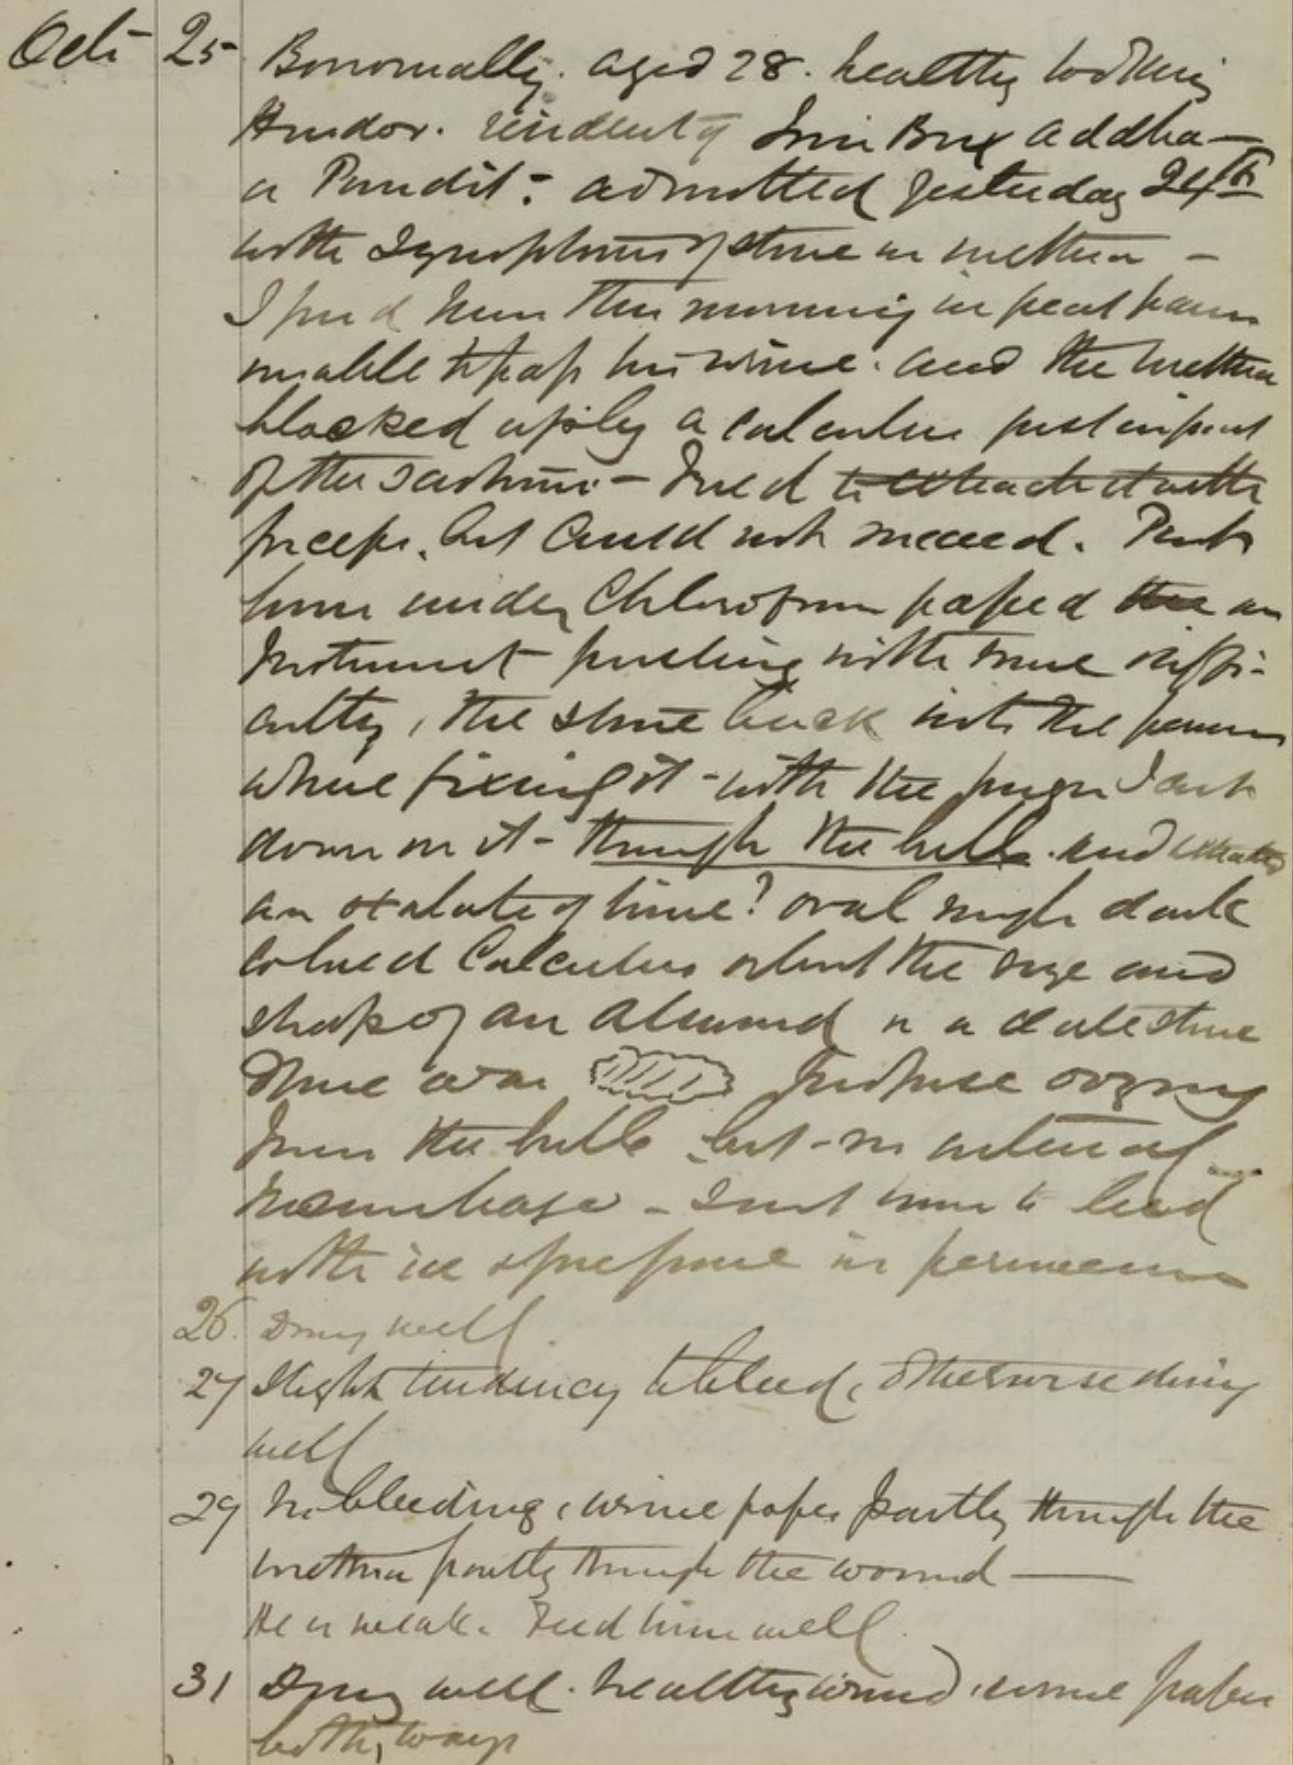 Oct 25 Bonomally. aged 28. healthy looking
Hindoo. resident of Addha
a Pundit. admitted yesterday 24th
with symptoms of stone in urethra —
I found him this morning in great pain
unable to pass his urine. and the urethra
blocked up by a calculus just in front
of the scrotum — Tried to extract it with
forceps. but could not succeed. Put
him under Chloroform passed the an
Instrument pushing with some diffi-
culty, the stone back into the perineum
where fixing it with the finger I cut
down on it — through the bulb. and extracted
an oxalate of lime? oval rough dark
colored Calculus about the size and
shape of an almond or a date stone
There was profuse oozing
from the bulb but no arterial
haemorrhage — Sent him to bed
with ice & pressure in perineum
26. Doing well.
27 Slight tendency to bleed, otherwise doing
well
29 No bleeding, urine passes partly through the
urethra partly through the wound —
He is weak. Feed him well.
31 Doing well. healthy wound, urine passes
both ways